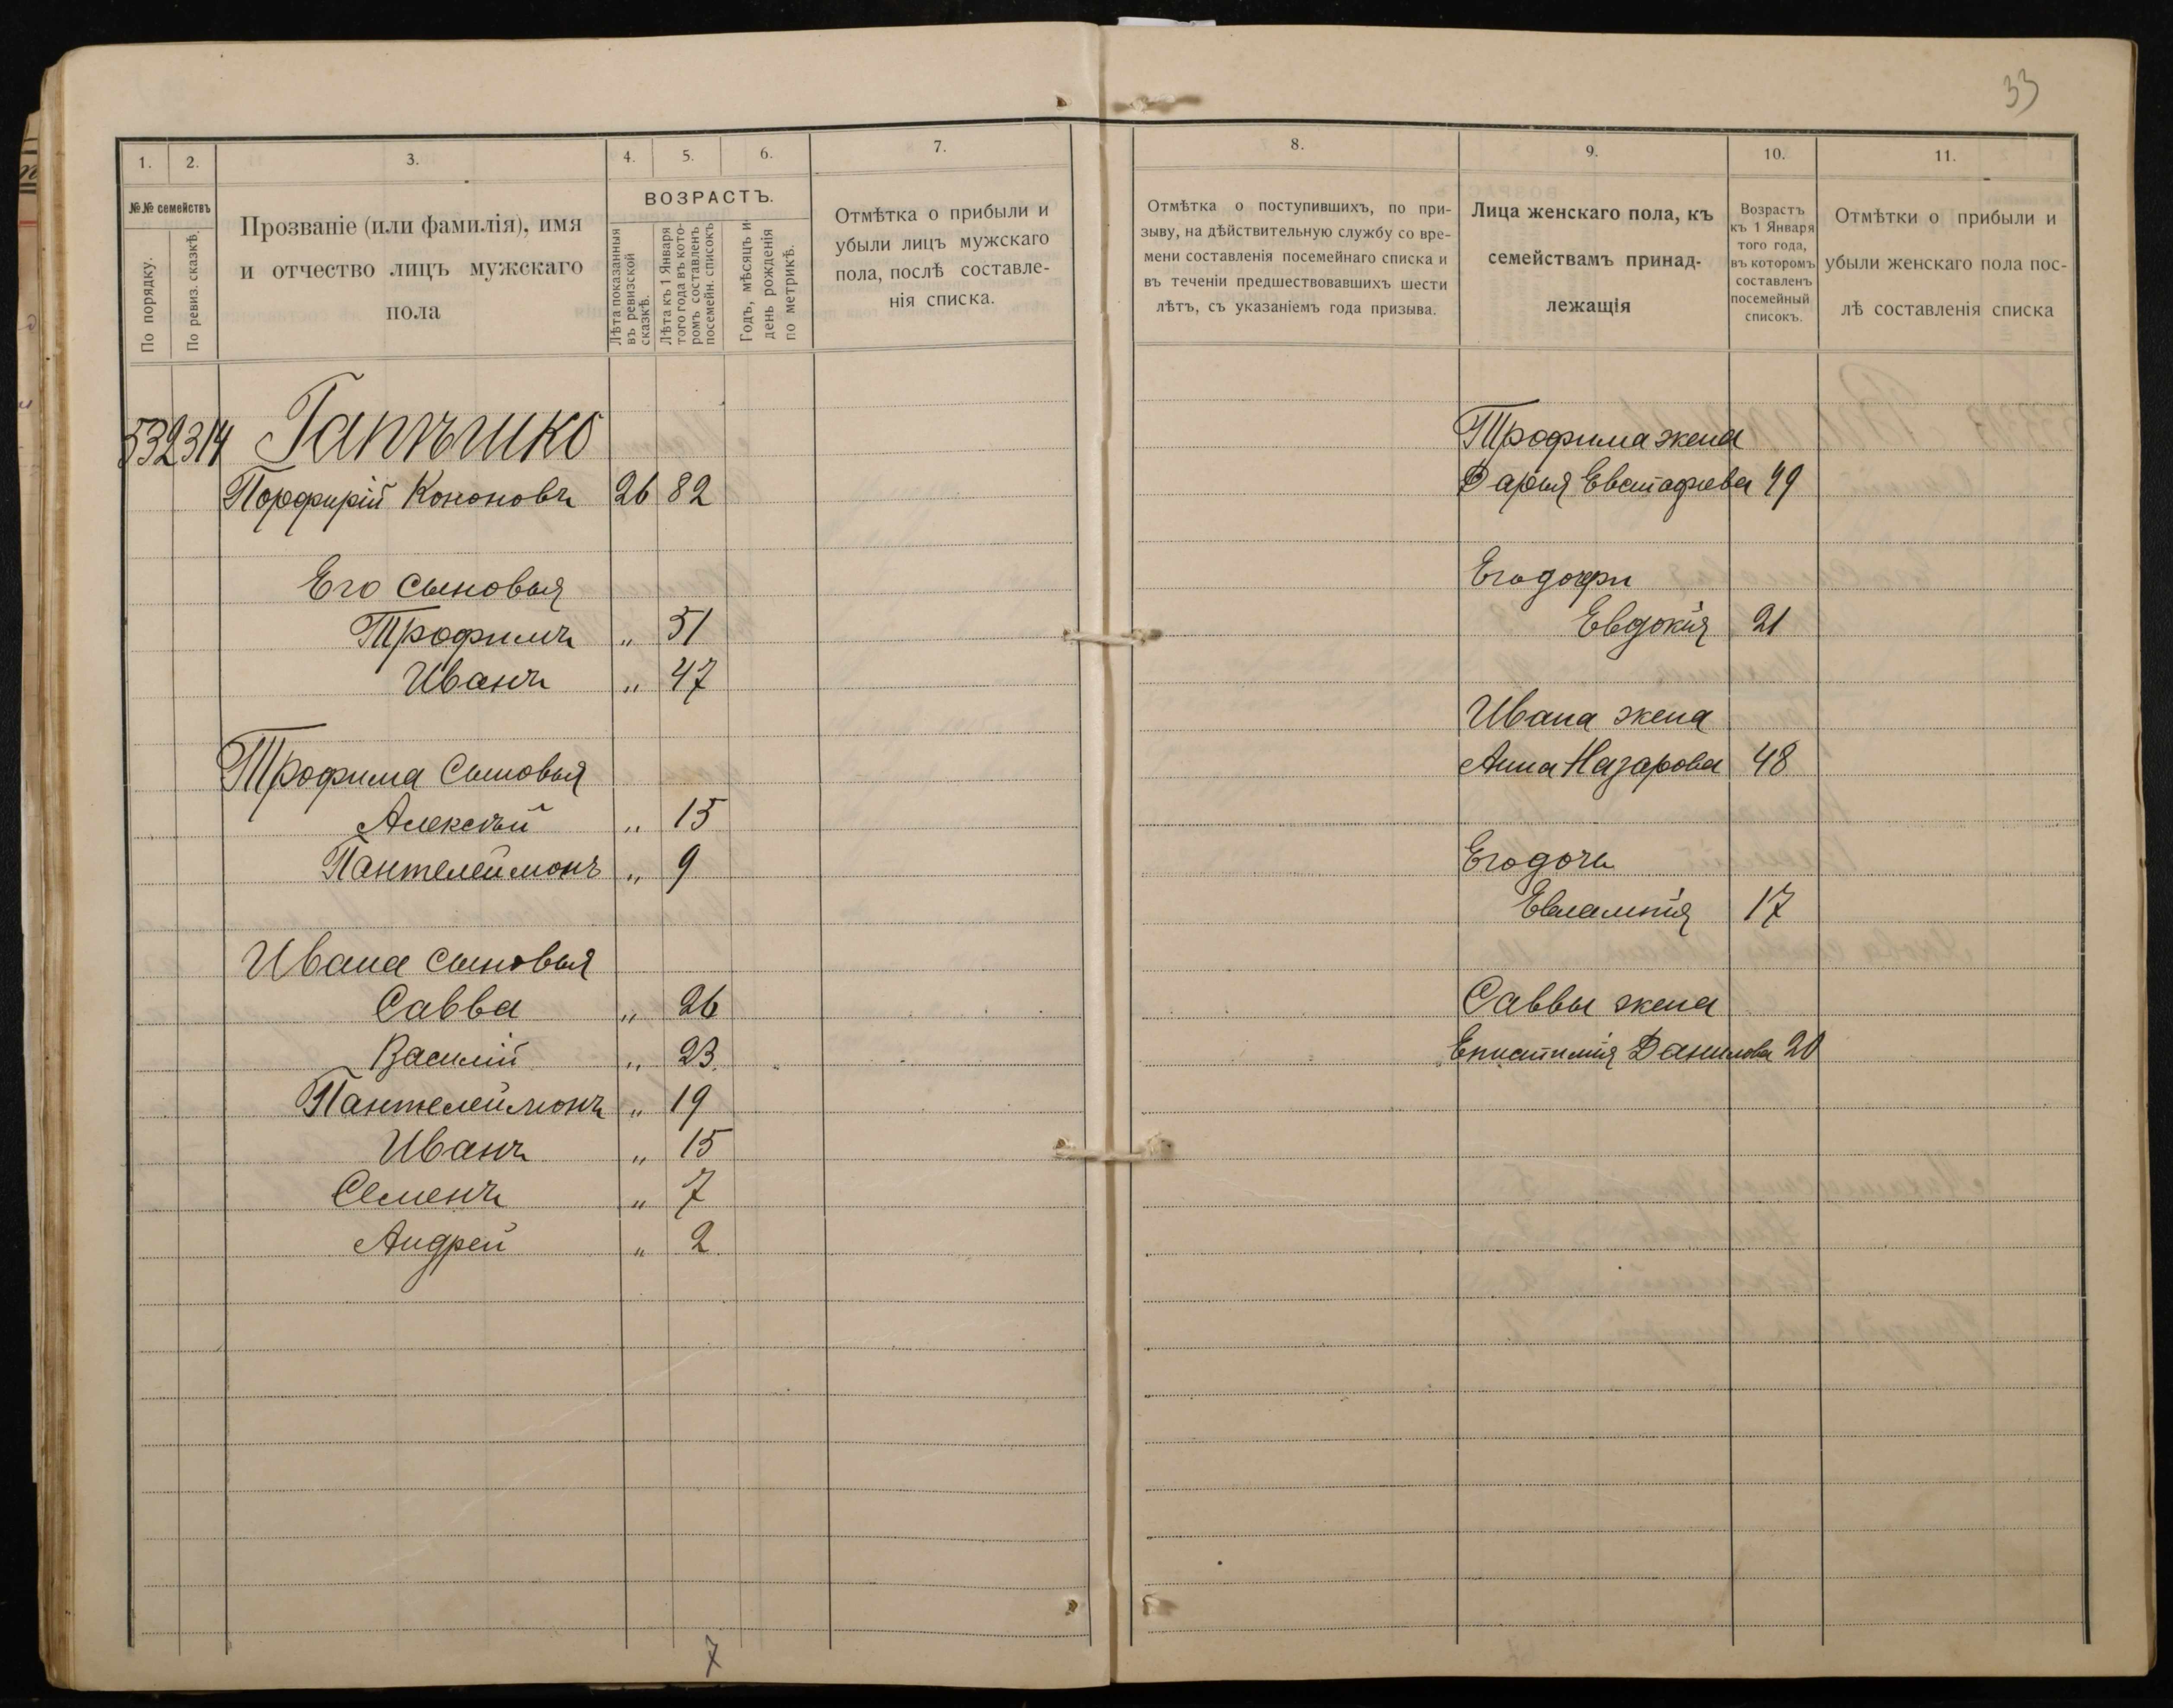 33
1.
2.
3.
4.
5.
6.
7.
№№ семействъ
По порядку.
По ревиз. сказкѣ.
Прозваніе (или фамилія), имя
и отчество лицъ мужскаго
пола
ВОЗРАСТЪ.
Лѣта показанныя
въ ревизской
сказкѣ.
Лѣта къ 1 Января
того года въ кото-
ромъ составленъ
посемейн. списокъ
Годъ, мѣсяцъ и
день рожденія
по метрикѣ.
Отмѣтка о прибыли и
убыли лицъ мужскаго
пола, послѣ составле-
нія списка.
532 314
Порфирій Кононовъ 26 82
Его сыновья
Трофимъ „ 51
Иванъ „ 47
Трофима сыновья
Алексѣй „ 15
Пантелеймонъ „ 9
Ивана сыновья
Савва „ 26
Василій „ 23
Пантелеймонъ „ 19
Иванъ „ 15
Семенъ „ 7
Андрей „ 2
7
8.
9.
10.
11.
Отмѣтка о поступившихъ, по при-
зыву, на дѣйствительную службу со вре-
мени составленія посемейнаго списка и
въ теченіи предшествовавшихъ шести
лѣтъ, съ указаніемъ года призыва.
Лица женскаго пола, къ
семействамъ принад-
лежащія
Возрастъ
къ 1 Января
того года,
въ которомъ
составленъ
посемейный
списокъ.
Отмѣтки о прибыли и
убыли женскаго пола пос-
лѣ составленія списка
Трофима жена
Дарья Евстафиева 49
Его дочери
Евдокія 21
Ивана жена
Анна Назарова 48
Его дочь
Евлампія 17
Саввы жена
Епистимія Данилова 20